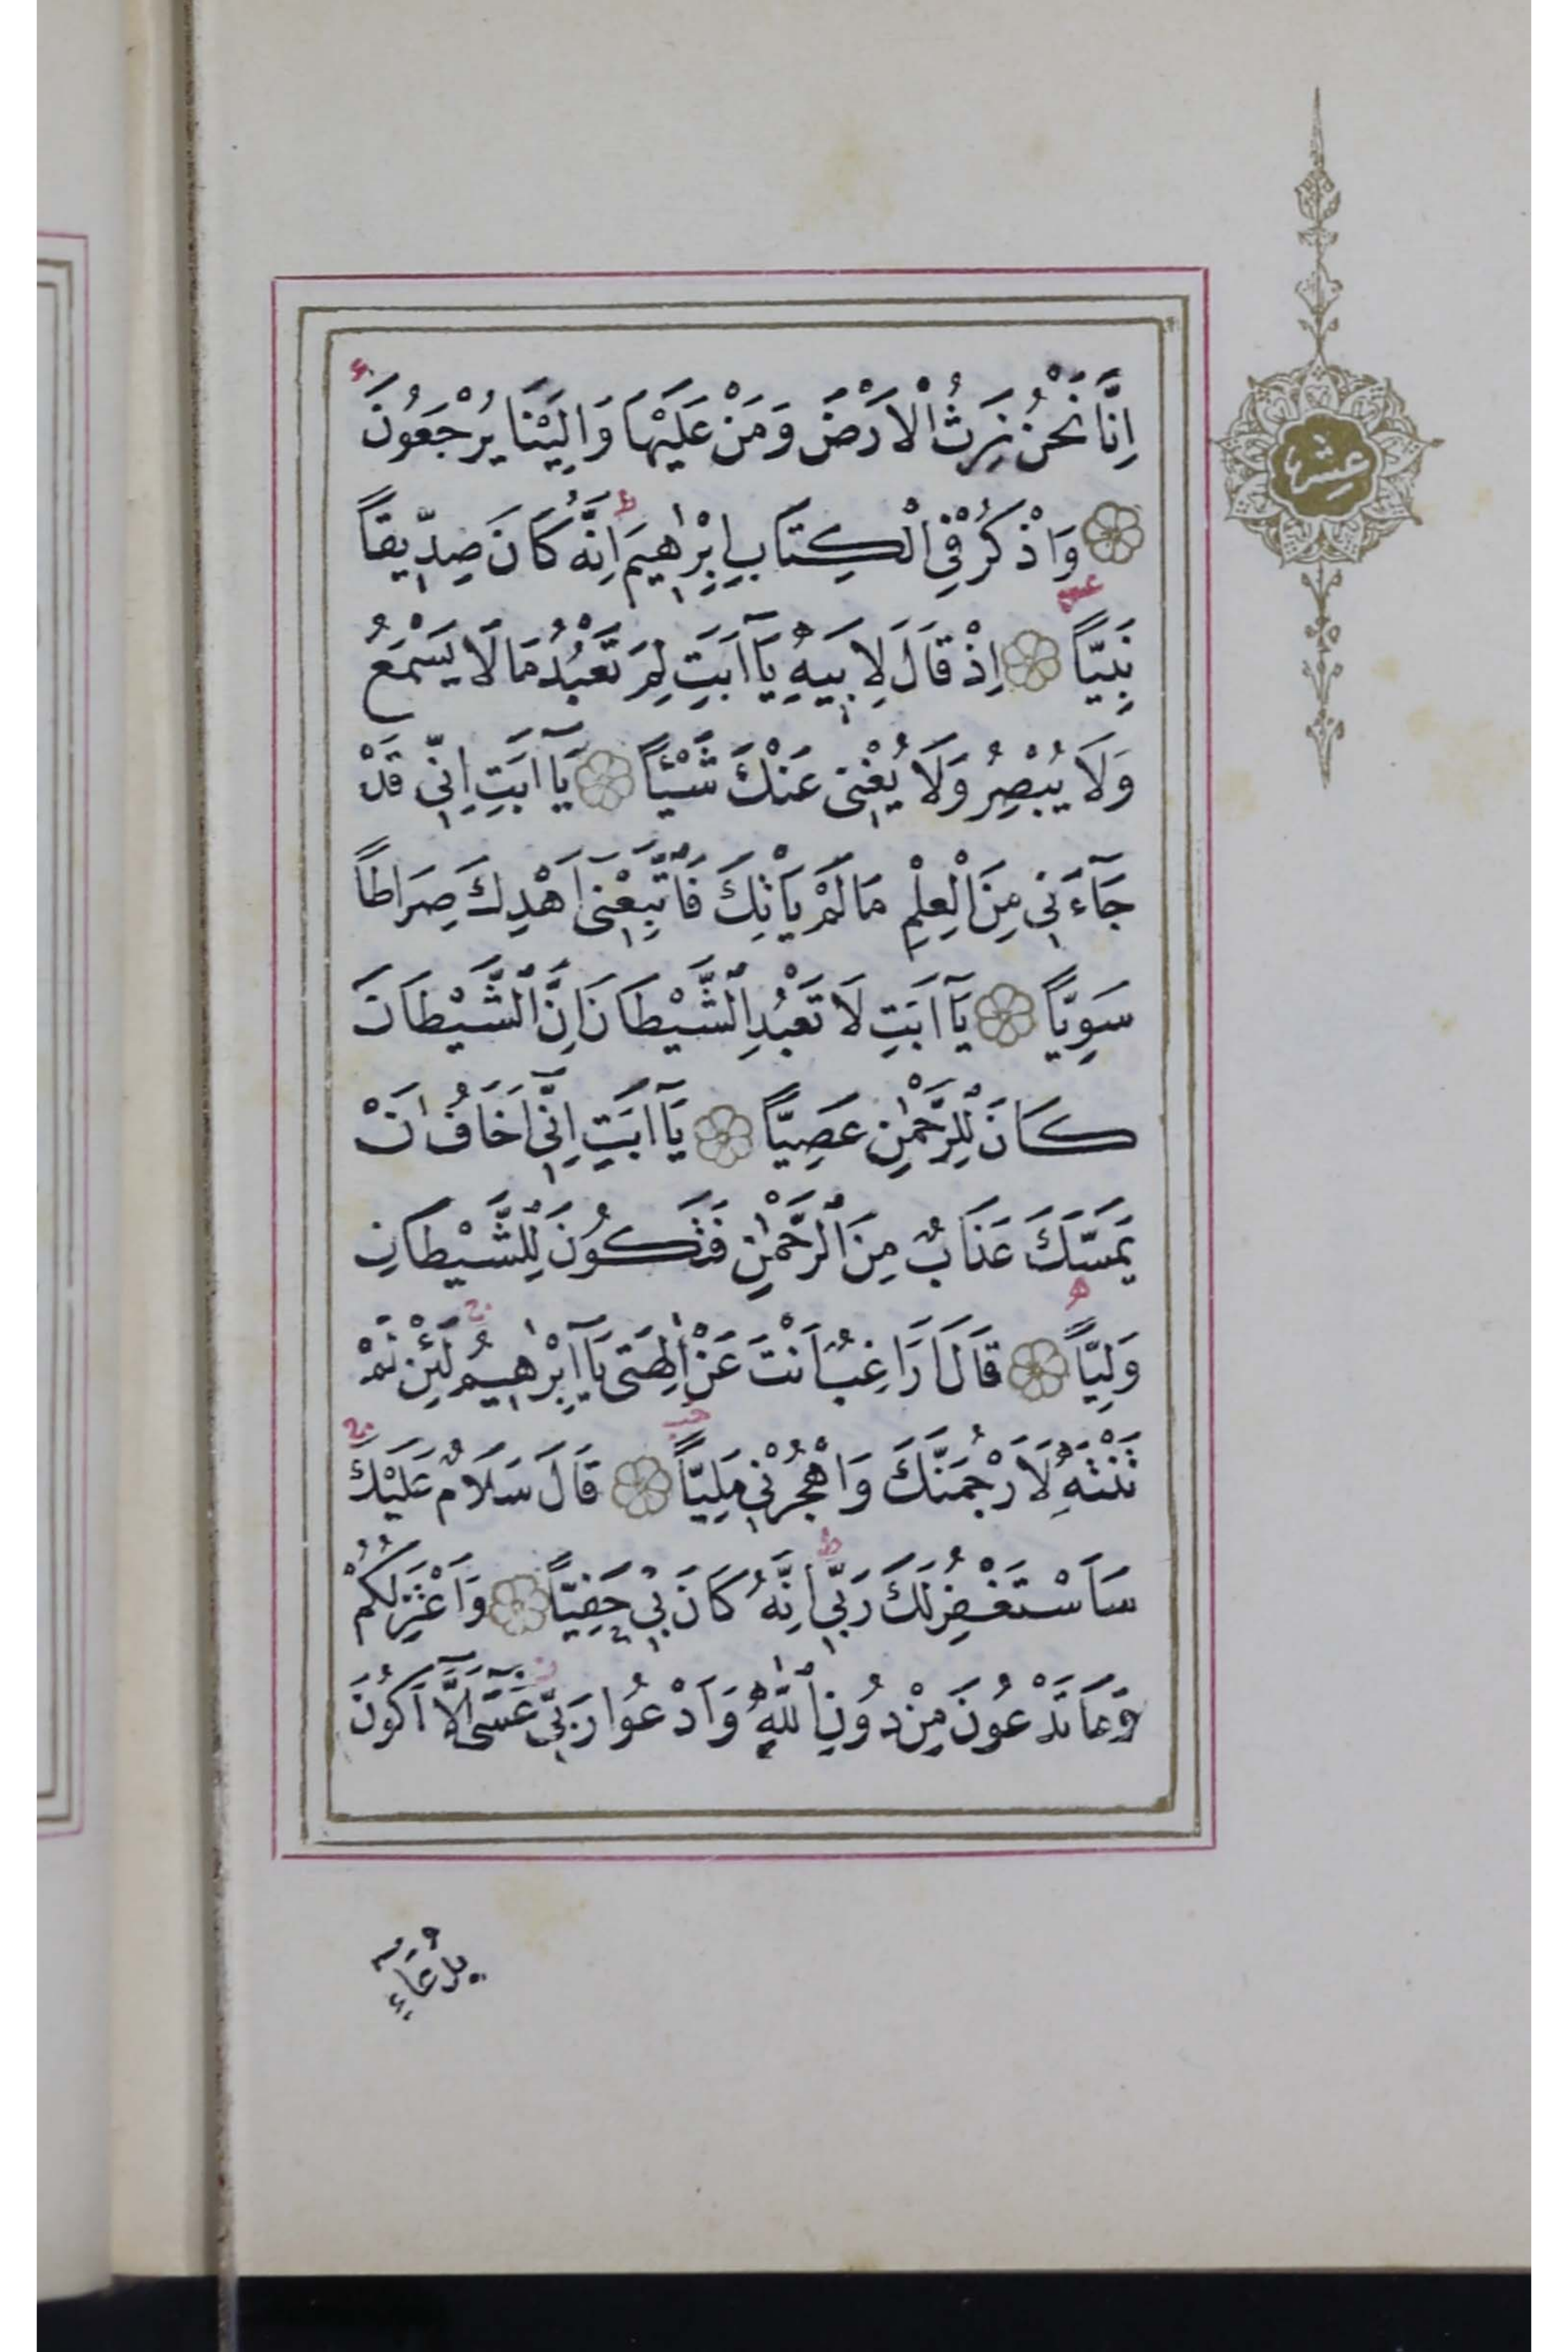 اِنَّا نَحْنُ نَرِثُ الْاَرْضَ وَمَنْ عَلَيْهَا وَاِلَيْنَا يُرْجَعُونَ
وَاذْكُرْ فِي الْكِتَابِ اِبْرٰهِيمَ اِنَّهُ كَانَ صِدِّيقاً
نَبِيّاً اِذْ قَالَ لِاَبِيهِ يَآ اَبَتِ لِمَ تَعْبُدُ مَا لَا يَسْمَعُ
وَلَا يُبْصِرُ وَلَا يُغْنِى عَنْكَ شَيْئاً يَآ اَبَتِ اِنِّى قَدْ
جَآءَنِى مِنَ الْعِلْمِ مَا لَمْ يَأْتِكَ فَاتَّبِعْنِىٓ اَهْدِكَ صِرَاطاً
سَوِيّاً يَآ اَبَتِ لَا تَعْبُدِ الشَّيْطَانَ اِنَّ الشَّيْطَانَ
كَانَ لِلرَّحْمٰنِ عَصِيّاً يَآ اَبَتِ اِنِّىٓ اَخَافُ اَنْ
يَمَسَّكَ عَذَابٌ مِنَ الرَّحْمٰنِ فَتَكُونَ لِلشَّيْطَانِ
وَلِيّاً قَالَ اَرَاغِبٌ اَنْتَ عَنْ اٰلِهَتِى يَآ اِبْرٰهِيمُ لَئِنْ لَمْ
تَنْتَهِ لَاَرْجُمَنَّكَ وَاهْجُرْنِى مَلِيّاً قَالَ سَلَامٌ عَلَيْكَ
سَاَسْتَغْفِرُ لَكَ رَبِّى اِنَّهُ كَانَ بِى حَفِيّاً وَاَعْتَزِلُكُمْ
وَمَا تَدْعُونَ مِنْ دُونِ اللّٰهِ وَاَدْعُوا رَبِّى عَسَىٓ اَلَّآ اَكُونَ
بِدُعَآءِ
عشر